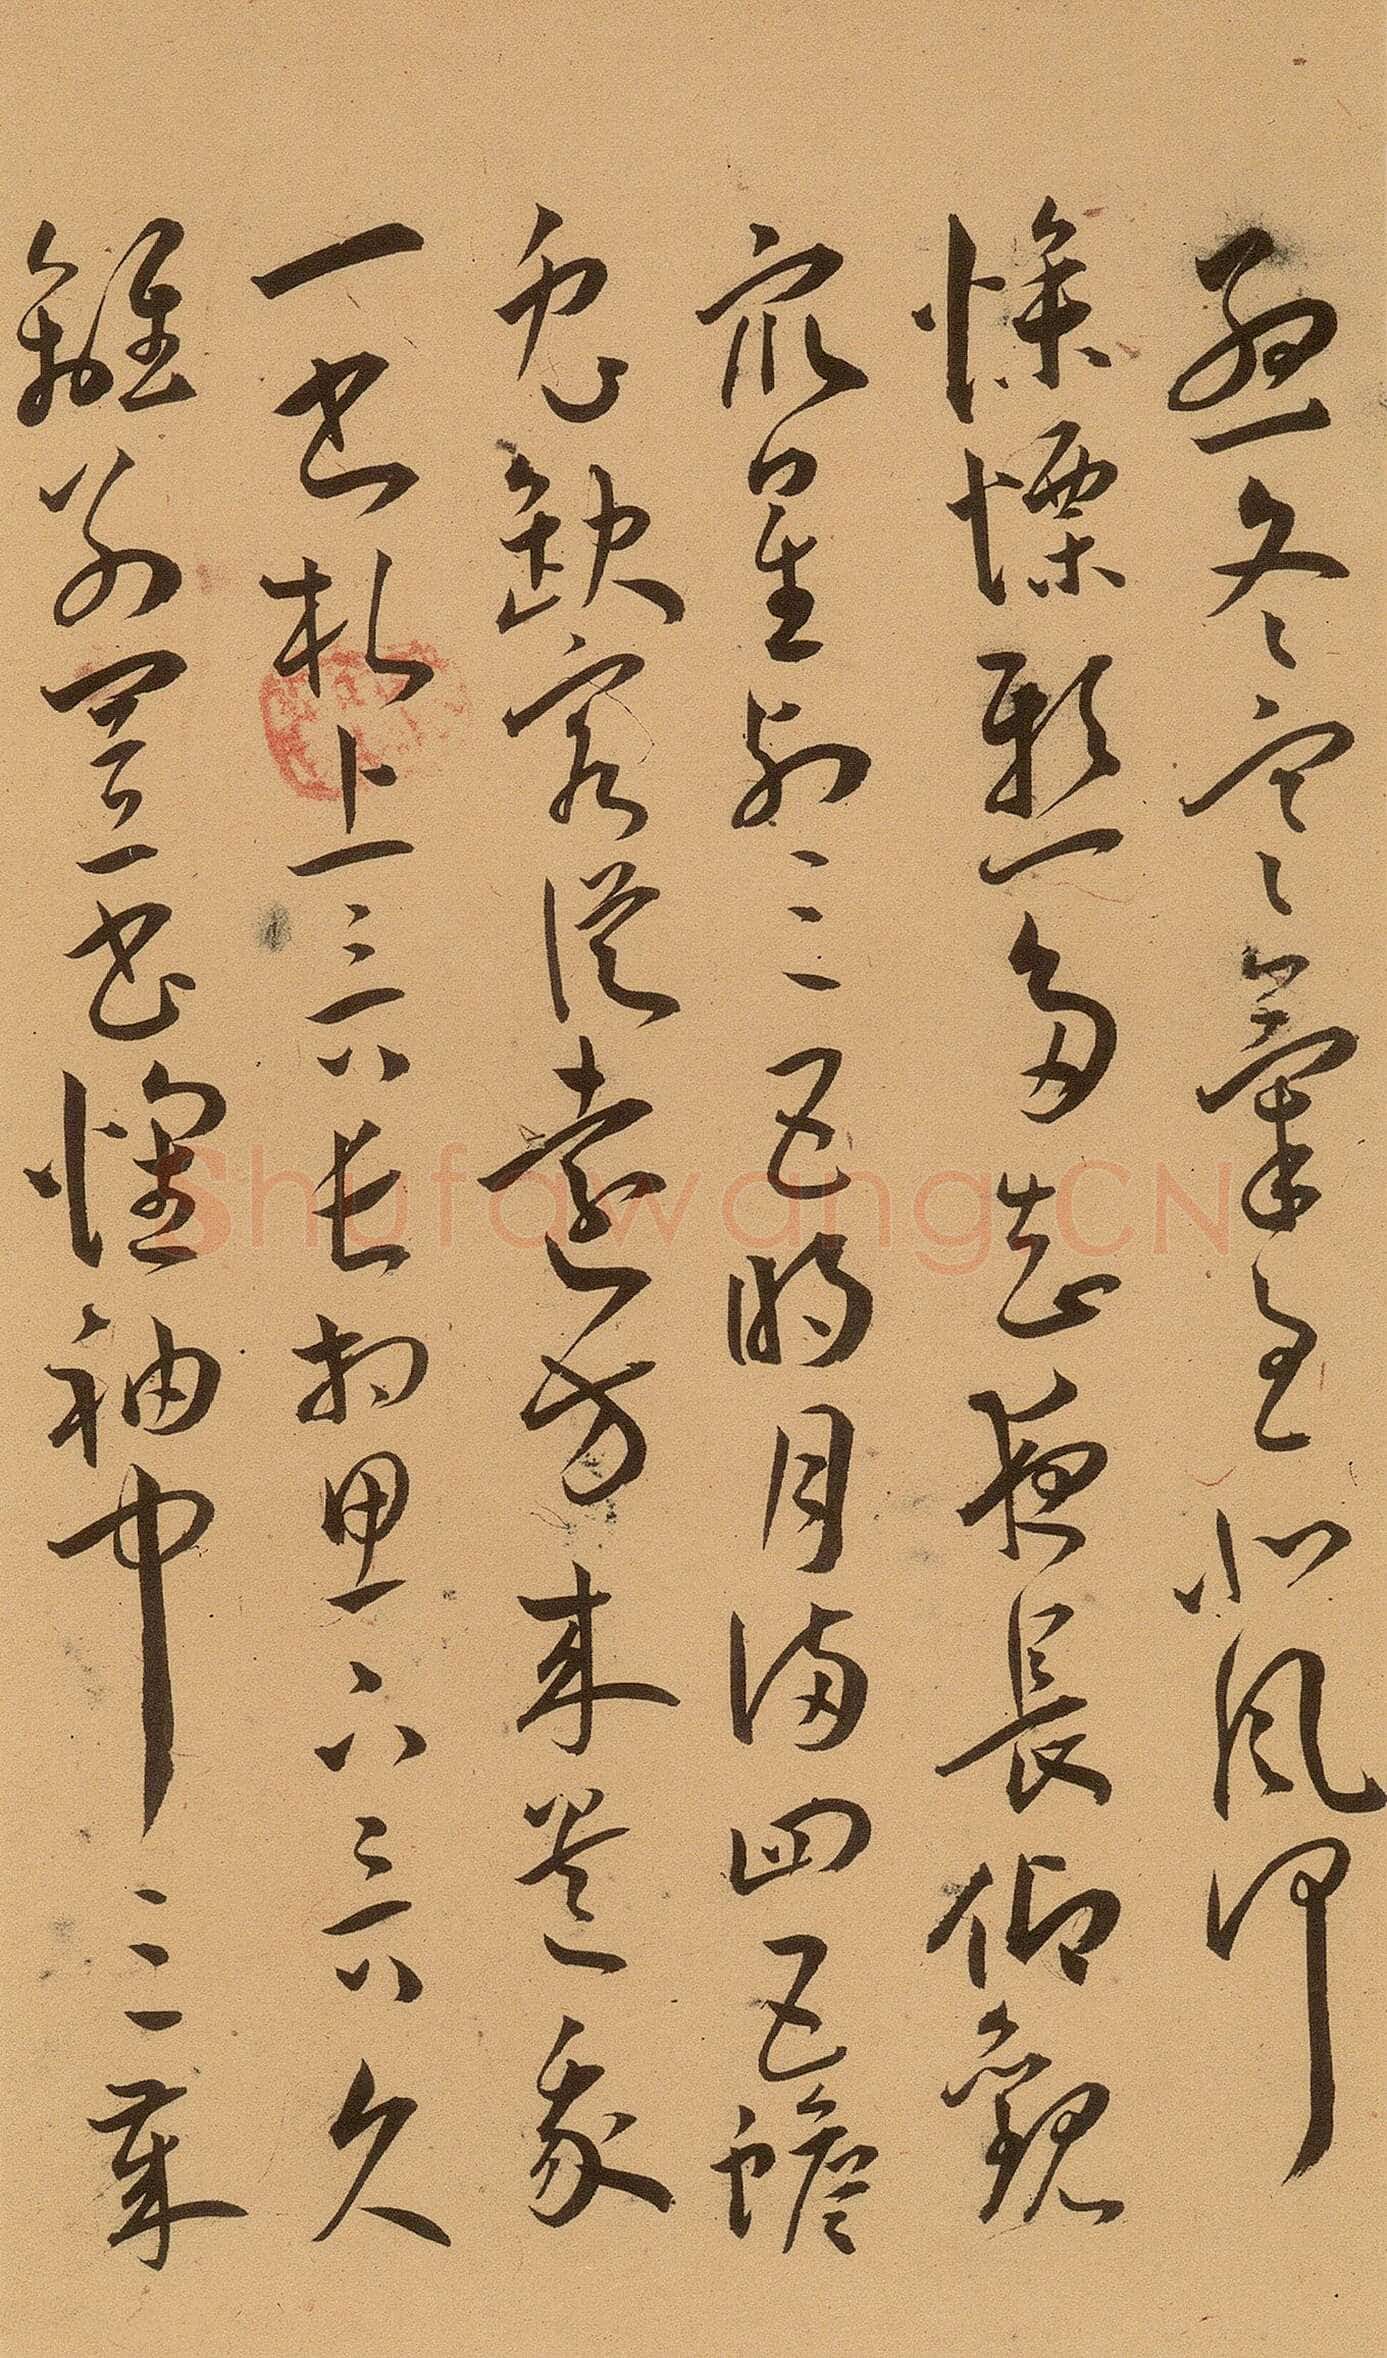 孟冬寒氣至北風何
慘慄愁多知夜長仰觀
眾星列三五明月滿四五蟾
兔缺客從遠方來遺我
一書札上言長相思下言久
離別置書懷袖中三歲
Shufawang.CN